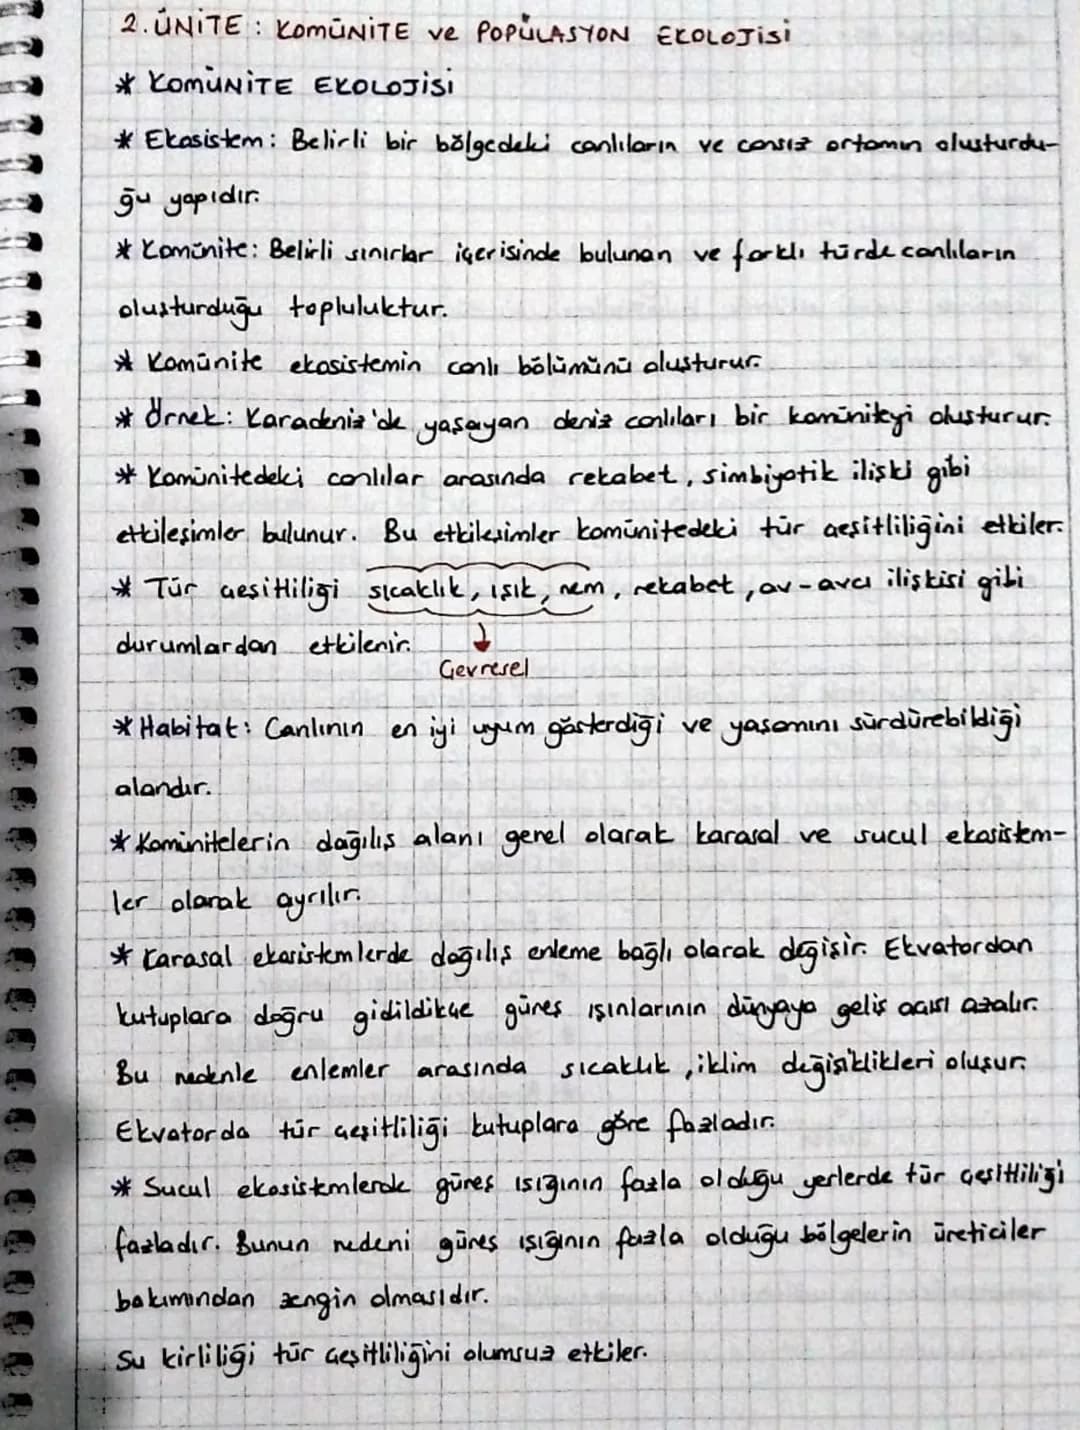 2. ÜNİTE : KOMÜNİTE ve POPÜLASYON EKOLOJİSİ
* KOMÜNİTE EKOLOJİSİ
* Ekosistem: Belirli bir bölgedeki canlıların ve cansız ortamın oluşturdu-
ğu yapıdır.
* Komünite: Belirli sınırlar içerisinde bulunan ve farklı türde canlıların
oluşturduğu topluluktur.
* Komünite ekosistemin canlı bölümünü oluşturur.
* Örnek: Karadeniz'de yaşayan deniz canlıları bir komüniteyi oluşturur.
* Komünitedeki canlılar arasında rekabet, simbiyotik ilişki gibi
etkileşimler bulunur. Bu etkileşimler komünitedeki tür çeşitliliğini etkiler.
* Tür çeşitliliği sıcaklık, ışık, nem, rekabet, av-avcı ilişkisi gibi
durumlardan etkilenir.
Çevresel
* Habitat: Canlının en iyi uyum gösterdiği ve yaşamını sürdürebildiği
alandır.
* Kominitelerin dağılış alanı genel olarak karasal ve sucul ekosistem-
ler olarak ayrılır.
* Karasal ekosistemlerde dağılış enleme bağlı olarak değişir. Ekvatordan
kutuplara doğru gidildikçe güneş ışınlarının dünyaya geliş açısı azalır.
Bu nedenle enlemler arasında sıcaklık, iklim değişiklikleri oluşur.
Ekvatorda tür çeşitliliği kutuplara göre fazladır.
* Sucul ekosistemlerde güneş ışığının fazla olduğu yerlerde tür çeşitliliği
fazladır. Bunun nedeni güneş ışığının fazla olduğu bölgelerin üreticiler
bakımından zengin olmasıdır.
Su kirliliği tür çeşitliliğini olumsuz etkiler.